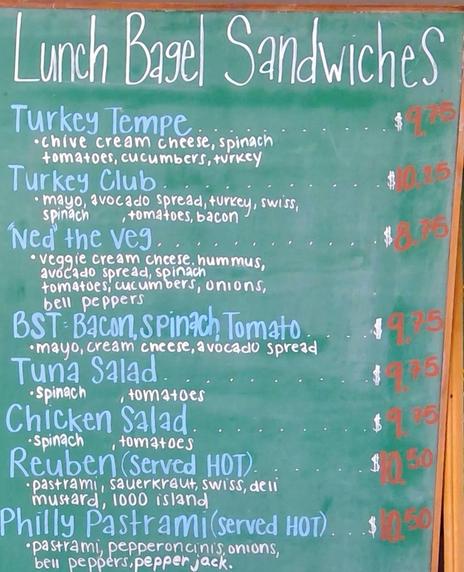 Lunch Bagel Sandwiches
Turkey Tempe . . . . . . . . . . $9.75
•chive cream cheese, spinach
tomatoes, cucumbers, turkey
Turkey Club . . . . . . . . . . $10.25
•mayo, avocado spread, turkey, swiss,
spinach , tomatoes, bacon
"Ned" the Veg . . . . . . . . . . $8.75
•veggie cream cheese, hummus,
avocado spread, spinach
tomatoes, cucumbers, onions,
bell peppers
BST: Bacon, Spinach, Tomato . . . $9.75
•mayo, cream cheese, avocado spread
Tuna Salad . . . . . . . . . . $9.75
•spinach , tomatoes
Chicken Salad . . . . . . . . $9.75
•spinach , tomatoes
Reuben (served HOT) . . . . . . $10.50
•pastrami, sauerkraut, swiss, deli
mustard, 1000 island
Philly Pastrami (served HOT) . . . $10.50
•pastrami, pepperoncinis, onions,
bell peppers, pepper jack.